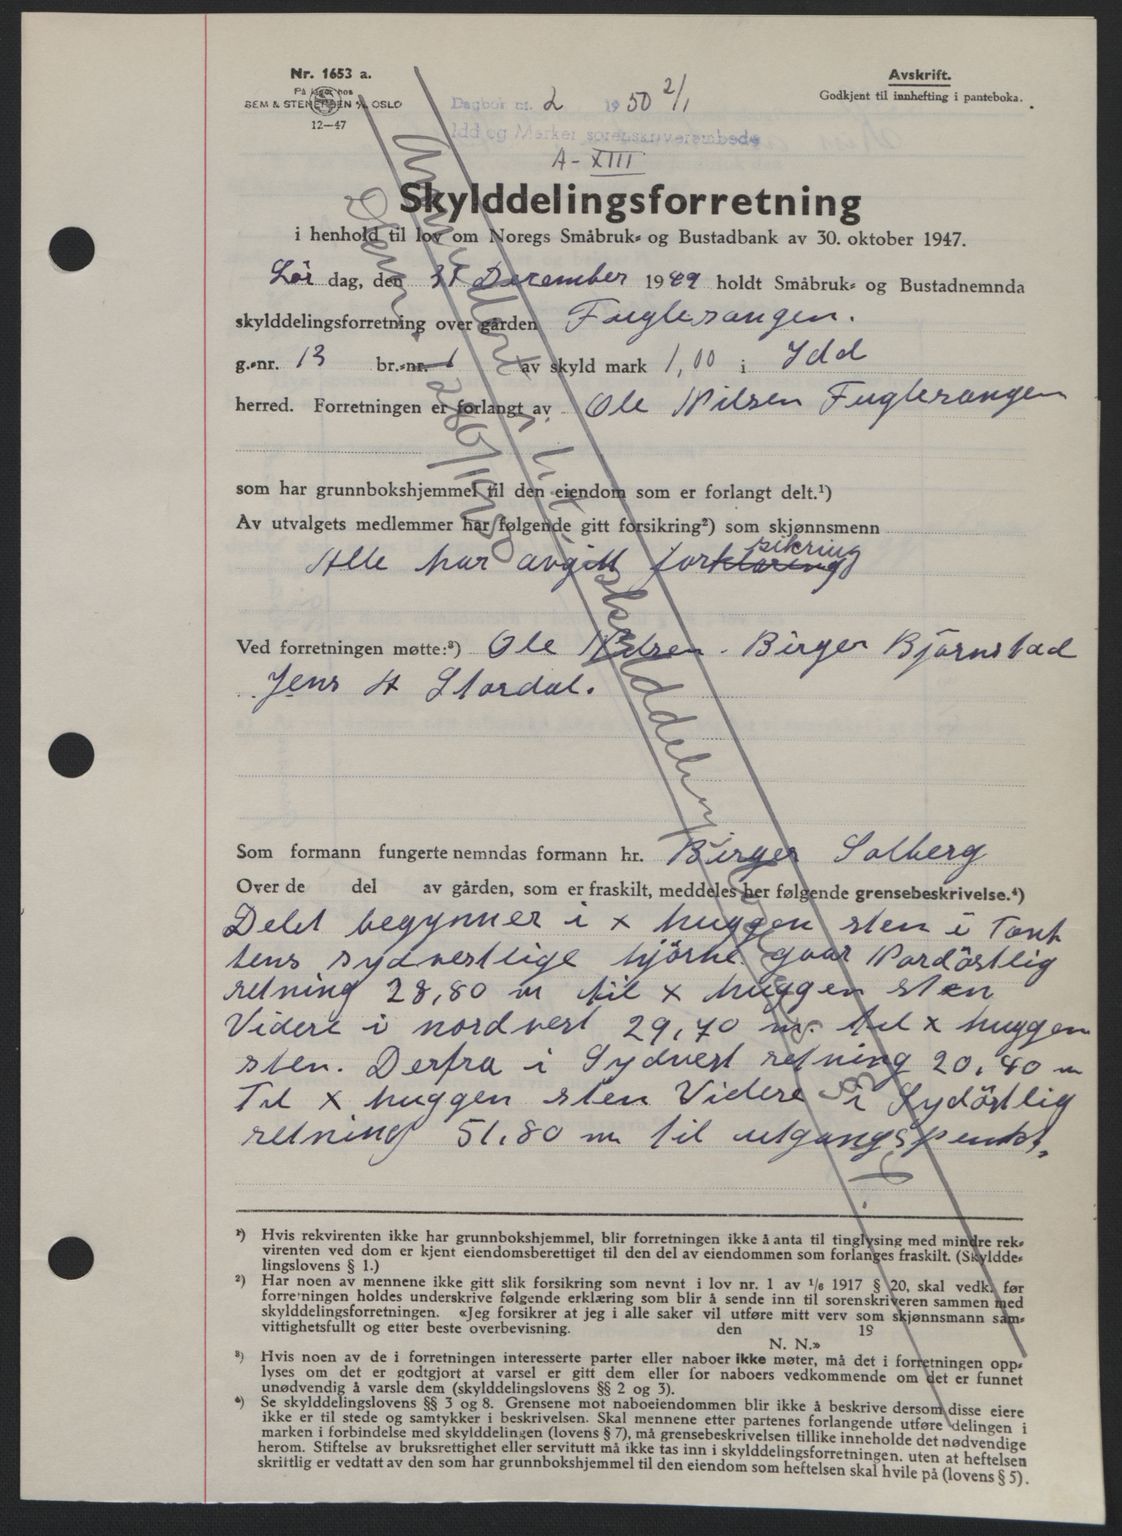 Nr. 1653 a.
På lager hos
SEM & STENERSEN A/S, OSLO
12—47
Avskrift.
Godkjent til innhefting i panteboka.
Dagbok nr. 2 1950 2/1
Idd og Marker sorenskriverembede
A - XIII
Skylddelingsforretning
i henhold til lov om Noregs Småbruk- og Bustadbank av 30. oktober 1947.
Lør dag, den 31 December 1949 holdt Småbruk- og Bustadnemnda
skylddelingsforretning over gården Fuglesangen.
g.-nr. 13 br.-nr. 1 av skyld mark 1,00 i Idd
herred. Forretningen er forlangt av Ole Nilsen Fuglesangen
som har grunnbokshjemmel til den eiendom som er forlangt delt.¹)
Av utvalgets medlemmer har følgende gitt forsikring²) som skjønnsmenn
Alle har avgitt forklaring sikring
Ved forretningen møtte:³) Ole Nilsen - Birger Bjørnstad
Jens H Stordal.
Som formann fungerte nemndas formann hr. Birger Solberg
Over de del av gården, som er fraskilt, meddeles her følgende grensebeskrivelse.⁴)
Delet begynner i x huggen sten i Tomt
tens sydvestlige hjörne gaar Nordöstlig
retning 28,80 m til x huggen sten
Videre i nordvest 29,70 m. til x huggen
sten. Derfra i Sydvest retning 20,40 m
Til x huggen sten Videre i Sydöstlig
retning 51,80 m til utgangspunkt.
¹) Hvis rekvirenten ikke har grunnbokshjemmel, blir forretningen ikke å anta til tinglysing med mindre rek-
virenten ved dom er kjent eiendomsberettiget til den del av eiendommen som forlanges fraskilt. (Skyldde-
lingslovens § 1.)
²) Har noen av mennene ikke gitt slik forsikring som nevnt i lov nr. 1 av 1/6 1917 § 20, skal vedk. før
forretningen holdes underskrive følgende erklæring som blir å sende inn til sorenskriveren sammen med
skylddelingsforretningen. «Jeg forsikrer at jeg i alle saker vil utføre mitt verv som skjønnsmann sam-
vittighetsfullt og etter beste overbevisning. den 19
N. N.»
³) Hvis noen av de i forretningen interesserte parter eller naboer ikke møter, må det i forretningen opp-
lyses om det er godtgjort at varsel er gitt dem eller for naboers vedkommende om det er funnet
unødvendig å varsle dem (skylddelingslovens §§ 2 og 3).
⁴) Se skylddelingslovens §§ 3 og 8. Grensene mot naboeiendommen blir ikke å beskrive dersom disse eiere
ikke er til stede og samtykker i beskrivelsen. Skal mennene etter partenes forlangende utføre delingen i
marken i forbindelse med skylddelingen (lovens § 7), må grensebeskrivelsen tillike inneholde det nødvendige
herom. Stiftelse av bruksrettighet eller servitutt må ikke tas inn i skylddelingsforretningen, uten at heftelsen
skriftlig er vedtatt av den som har grunnbokshjemmel til den eiendom som heftelsen skal hvile på (lovens § 5).